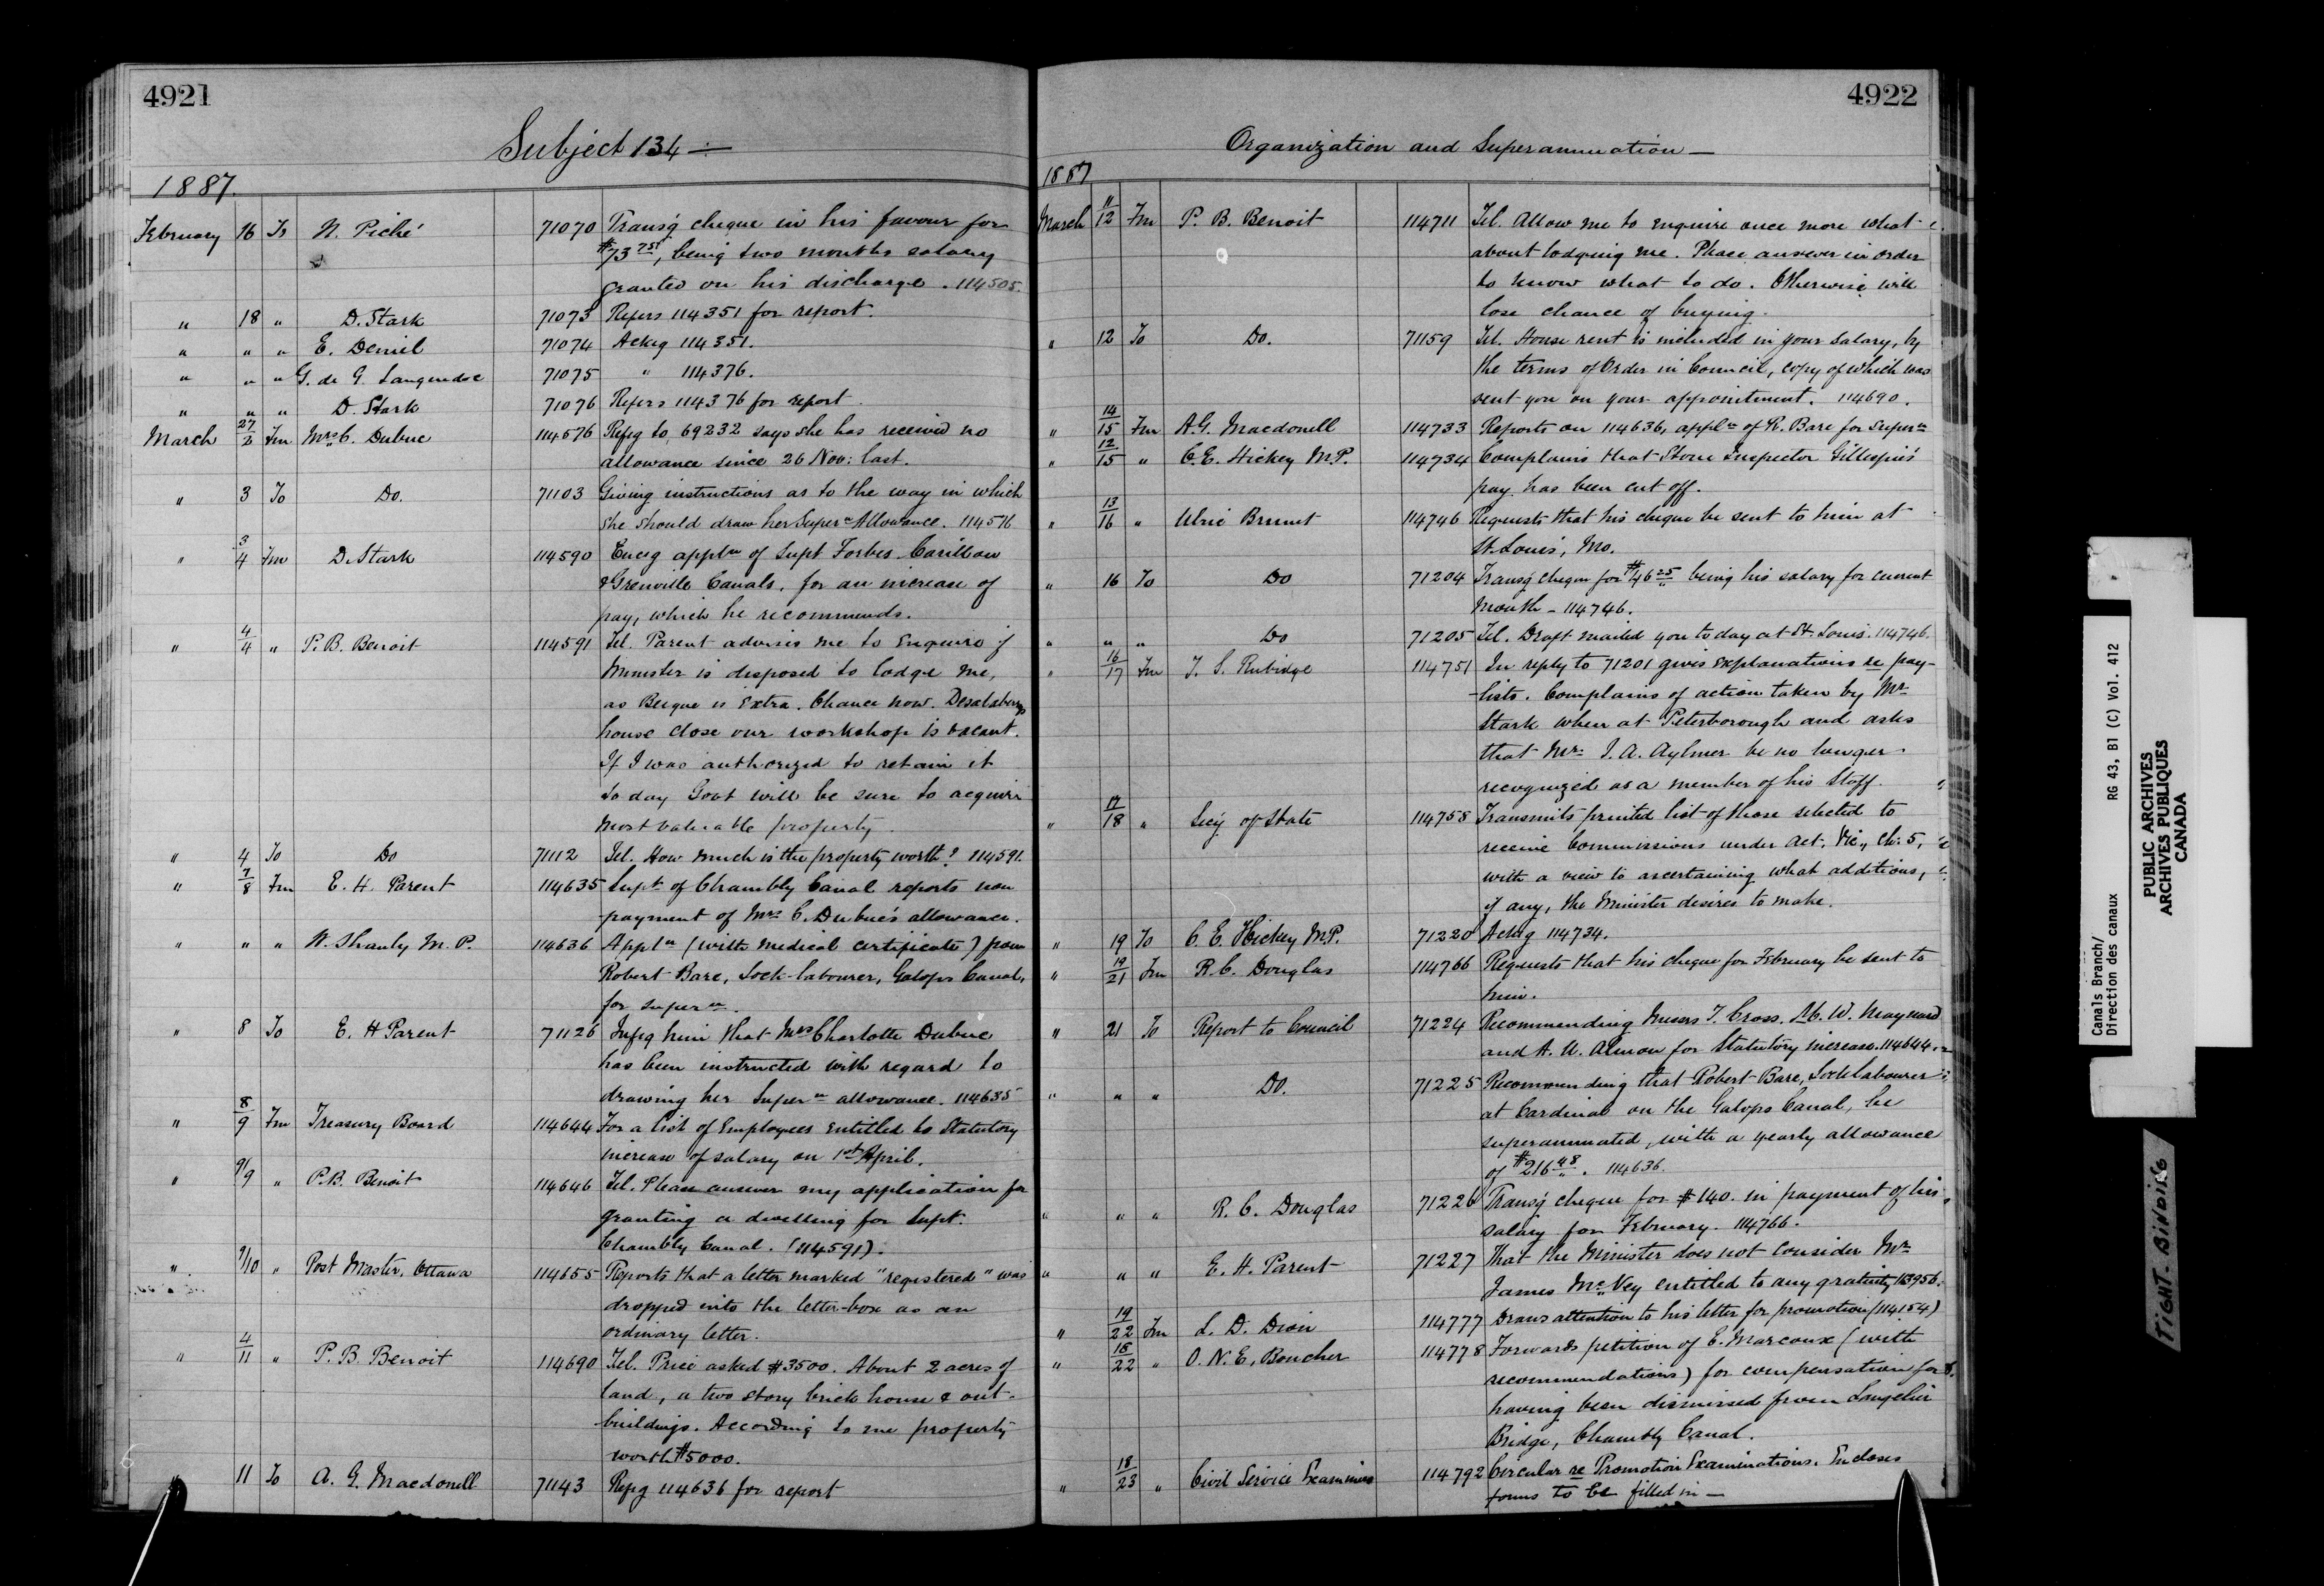 4921
Subject 134
1887.
February 16 To N. Piché 71070 Transg cheque in his favour for
$73 75, being two months salary
granted on his discharge. 114505.
" 18 " D. Stark 71073 Refers 114351 for report.
" " " E. Deniel 71074 Ackg 114351.
" " " G. de G. Languedoc 71075 " 114376.
" " " D. Stark 71076 Refers 114376 for report.
March 27/2 Fm Mrs C. Dubuc 114576 Refg to 69232 says she has received no
allowance since 26 Nov: last.
" 3 To Do. 71103 Giving instructions as to the way in which
she should draw her Supern Allowance. 114576
" 3/4 Fm D. Stark 114590 Encg appln of Supt Forbes Carillon
& Grenville Canals, for an increase of
pay, which he recommends.
" 4/4 " P. B. Benoit 114591 Tel. Parent advises me to Enquire if
Minister is disposed to lodge me,
as Beique is Extra. Chance now.
house close our workshop is vacant.
If I was authorized to retain it
to day Govt will be sure to acquire
most valuable property.
" 4 To Do 71112 Tel. How much is the property worth? 114591.
" 7/8 Fm E. H. Parent 114635 Supt of Chambly Canal reports non
payment of Mrs C. Dubuc's allowance.
" " " W. Shanly M.P. 114636 Appln (with medical certificate) from
Robert Bare, Lock-labourer, Galops Canal,
for supern.
" 8 To E. H Parent 71126 Infg him that Mrs Charlotte Dubuc
has been instructed with regard to
drawing her Supern allowance. 114635
" 8/9 Fm Treasury Board 114644 For a list of Employees entitled to Statutory
increase of salary on 1st April.
" 9/9 " P. B. Benoit 114646 Tel. Please answer my application for
granting a dwelling for Supt.
Chambly Canal. (114591).
" 9/10 " Post Master, Ottawa 114655 Reports that a letter marked "registered" was
dropped into the letter-box as an
ordinary letter.
" 4/11 " P. B. Benoit 114690 Tel. Price asked $3500. About 2 acres of
land, a two story brick house & out-
buildings. According to me property
worth $5000.
" 11 To A. G. Macdonell 71143 Refg 114636 for report
4922
Organization and Superannuation
1887
March 11/12 Fm P. B. Benoit 114711 Tel. Allow me to enquire once more what
about lodging me. Please answer in order
to know what to do. Otherwise will
lose chance of buying.
" 12 To Do. 71159 Tel. House rent is included in your salary, by
the terms of Order in Council, copy of which was
sent you on your appointment. 114690.
" 14/15 Fm A. G. Macdonell 114733 Reports on 114636, appln of R. Bare for supern
" 12/15 " C. E. Hickey M.P. 114734 Complains that Stone Inspector Gillespie's
pay has been cut off.
" 13/16 " Ulric Brunet 114746 Requests that his cheque be sent to him at
St. Louis, Mo.
" 16 To Do 71204 Transg cheque for $46 25 being his salary for current
month - 114746.
" " " Do 71205 Tel. Draft mailed you to day at St. Louis. 114746.
" 16/17 Fm T. S. Rubidge 114751 In reply to 71201 gives explanations re pay-
lists. Complains of action taken by Mr
Stark when at Peterborough and asks
that Mr J. A. Aylmer be no longer
recognized as a member of his Staff.
" 17/18 " Secy of State 114758 Transmits printed list of those selected to
receive Commissions under Act. Vic., Ch. 5,
with a view to ascertaining what additions,
if any, the Minister desires to make.
" 19 To C. E. Hickey M.P. 71220 Ackg 114734.
" 19/21 Fm R. C. Douglas 114766 Requests that his cheque for February be sent to
him.
" 21 To Report to Council 71224 Recommending Messrs T. Cross, W. Maynard
and A. U. Almon for Statutory increase. 114644.
" " " Do. 71225 Recommending that Robert Bare, Lock labourer
at Cardinal on the Galops Canal, be
superannuated, with a yearly allowance
of $216 48. 114636.
" " " R. C. Douglas 71226 Transg cheque for $140. in payment of his
salary for February. 114766.
" " " E. H. Parent 71227 That the Minister does not consider Mr
James McVey entitled to any gratuity 113956.
" 19/22 Fm L. D. Dion 114777 Draws attention to his letter for promotion (114154)
" 18/22 " O. N. E. Boucher 114778 Forwards petition of E. Marcoux (with
recommendations) for compensation for
having been dismissed from Langelier
Bridge, Chambly Canal.
" 18/23 " Civil Service Examiners 114792 Circular re Promotion Examinations. Encloses
forms to be filled in
Canals Branch/
Direction des canaux
RG 43, B1 (C) Vol. 412
PUBLIC ARCHIVES
ARCHIVES PUBLIQUES
CANADA
TIGHT BINDING